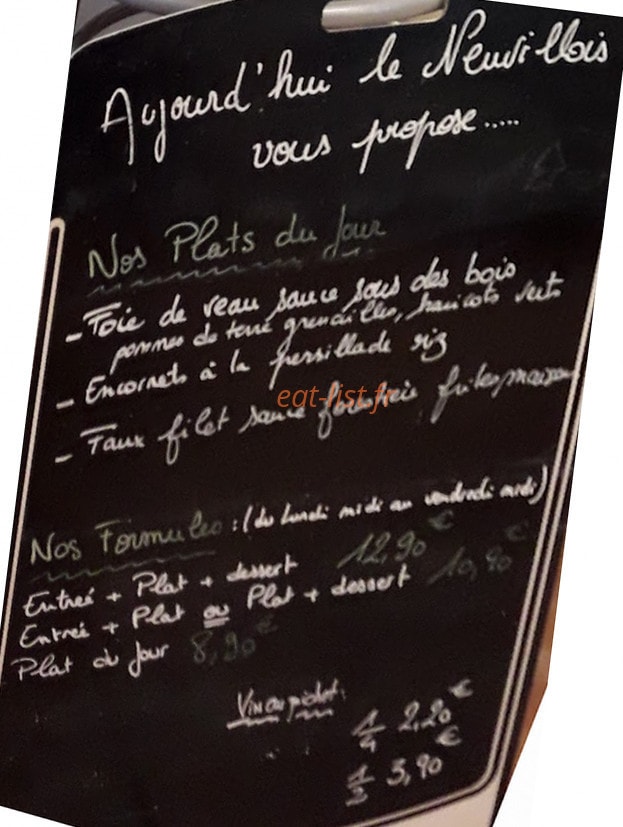 Aujourd'hui le Neuvillois
vous propose.....
Nos Plats du Jour
- Foie de veau sauce sous des bois
pommes de terre grenailles, haricots verts
- Encornets à la persillade riz
eat-list.fr
- Faux filet sauce forestière frites maison
Nos Formules : (du lundi midi au vendredi midi)
Entreé + Plat + dessert 12,90 €
Entreé + Plat ou Plat + dessert 10,90 €
Plat du Jour 8,90 €
Vin au pichet :
1/4 2,20 €
1/2 3,90 €